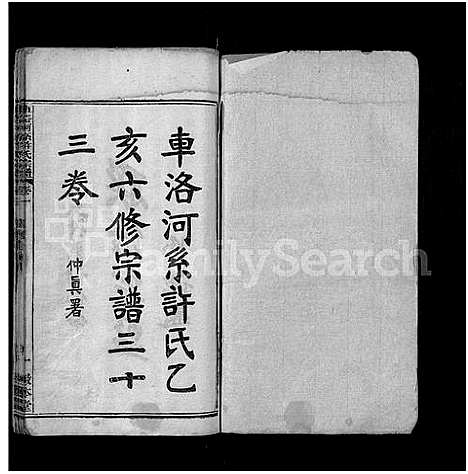 車洛河系許氏乙
亥六修宗譜三十
三卷
仲真署
FamilySearch